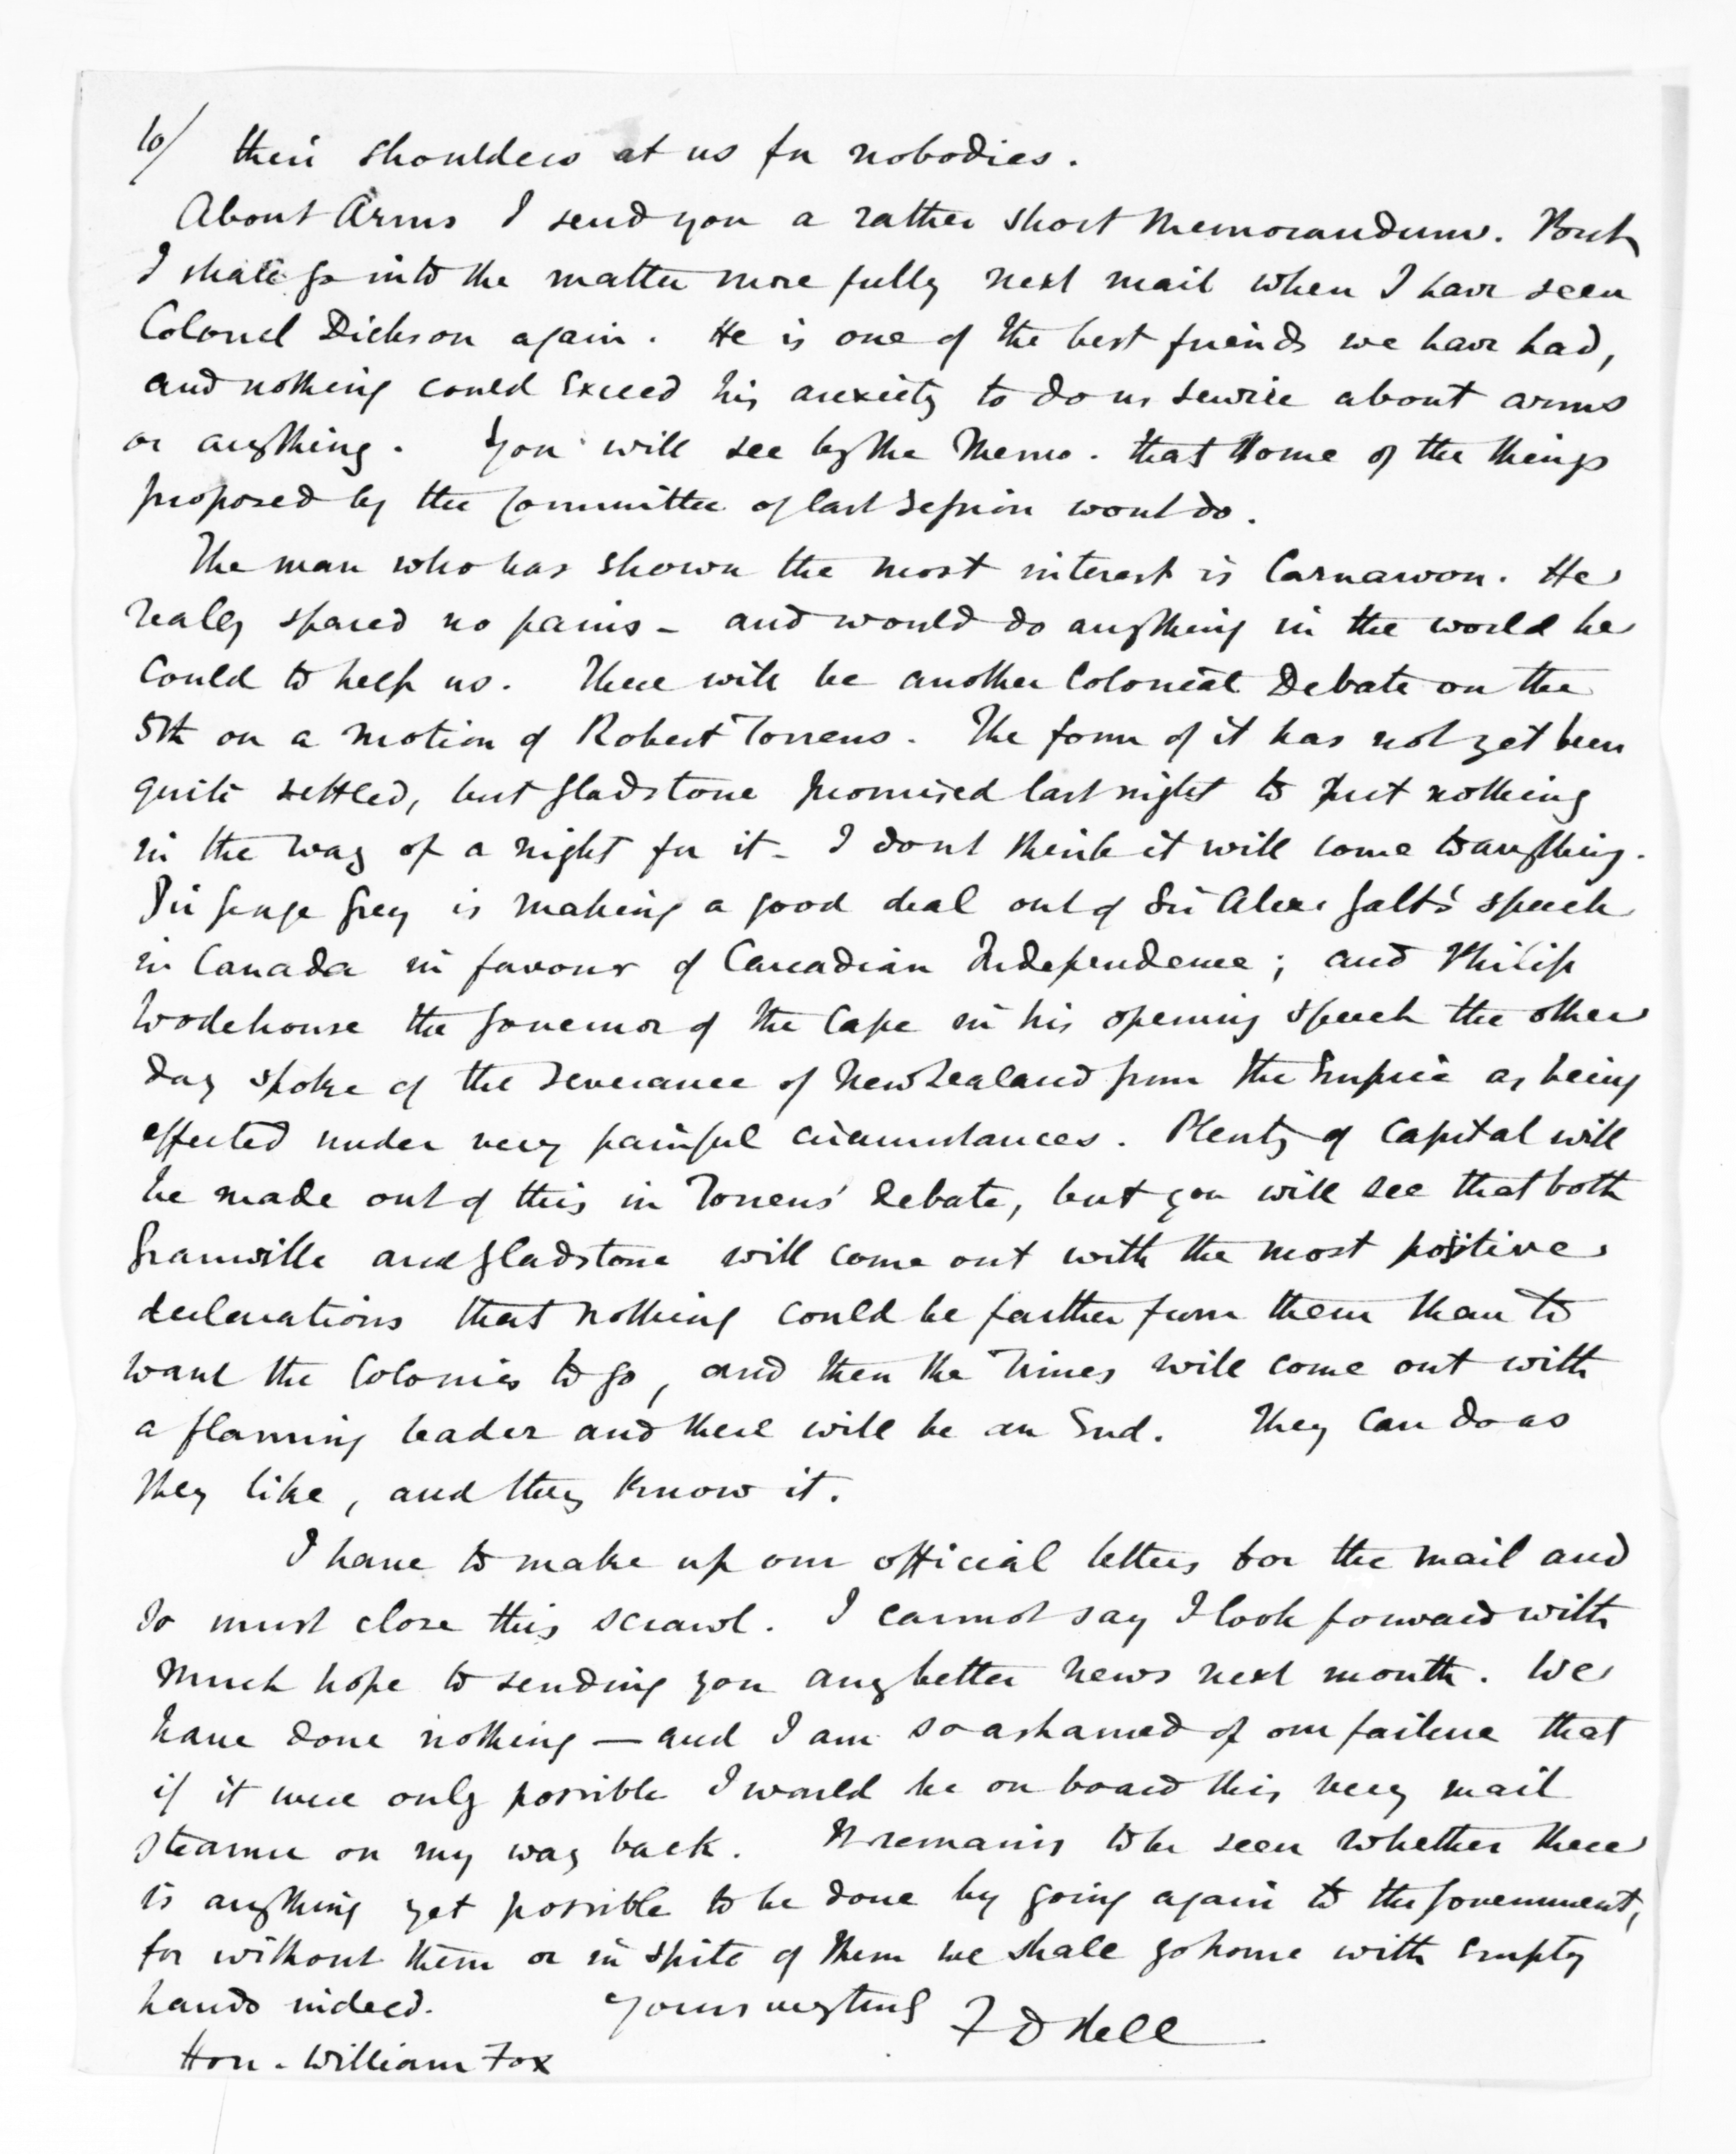 10/ their shoulders at us for nobodies.
About Arms I send you a rather short Memorandum. But
I shall go into the matter more fully next mail when I have seen
Colonel Dickson again. He is one of the best friends we have had,
and nothing could exceed his anxiety to do us service about arms
or anything. You will see by the Memo. that some of the things
proposed by the Committee of last Session wont do.
The man who has shown the most interest is Carnarvon. He
really spared no pains - and would do anything in the world he
could to help us. There will be another Colonial Debate on the
5th on a motion of Robert Torrens. The form of it has not yet been
quite settled, but Gladstone promised last night to put nothing
in the way of a night for it - I dont think it will come to anything.
Sir George Grey is making a good deal out of Sir Alexr Galt's speech
in Canada in favour of Canadian Independence; and Philip
Wodehouse the Governor of the Cape in his opening speech the other
day spoke of the severance of New Zealand from the Empire as being
effected under very painful circumstances. Plenty of Capital will
be made out of this in Torrens' debate, but you will see that both
Granville and Gladstone will come out with the most positive
declarations that nothing could be farther from them than to
want the Colonies to go, and then the Times will come out with
a flaming leader and there will be an End. They can do as
they like, and they know it.
I have to make up our official letters for the mail and
so must close this scrawl. I cannot say I look forward with
much hope to sending you any better news next month. We
have done nothing — and I am so ashamed of our failure that
if it were only possible I would be on board this very mail
steamer on my way back. It remains to be seen whether there
is anything yet possible to be done by going again to the Government,
for without them or in spite of them we shall go home with empty
hands indeed. Yours very truly F D Bell
Hon. William Fox